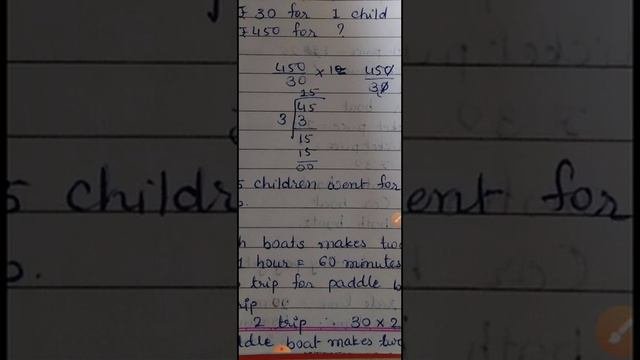 ₹30 for 1 child
₹450 for ?
450/30 × 1 = 450/30
15
3 √45
3
15
15
00
5 children went for
boats makes two
1 hour = 60 minutes
trip for paddle
2 trip ∴ 30 × 2
boat makes two